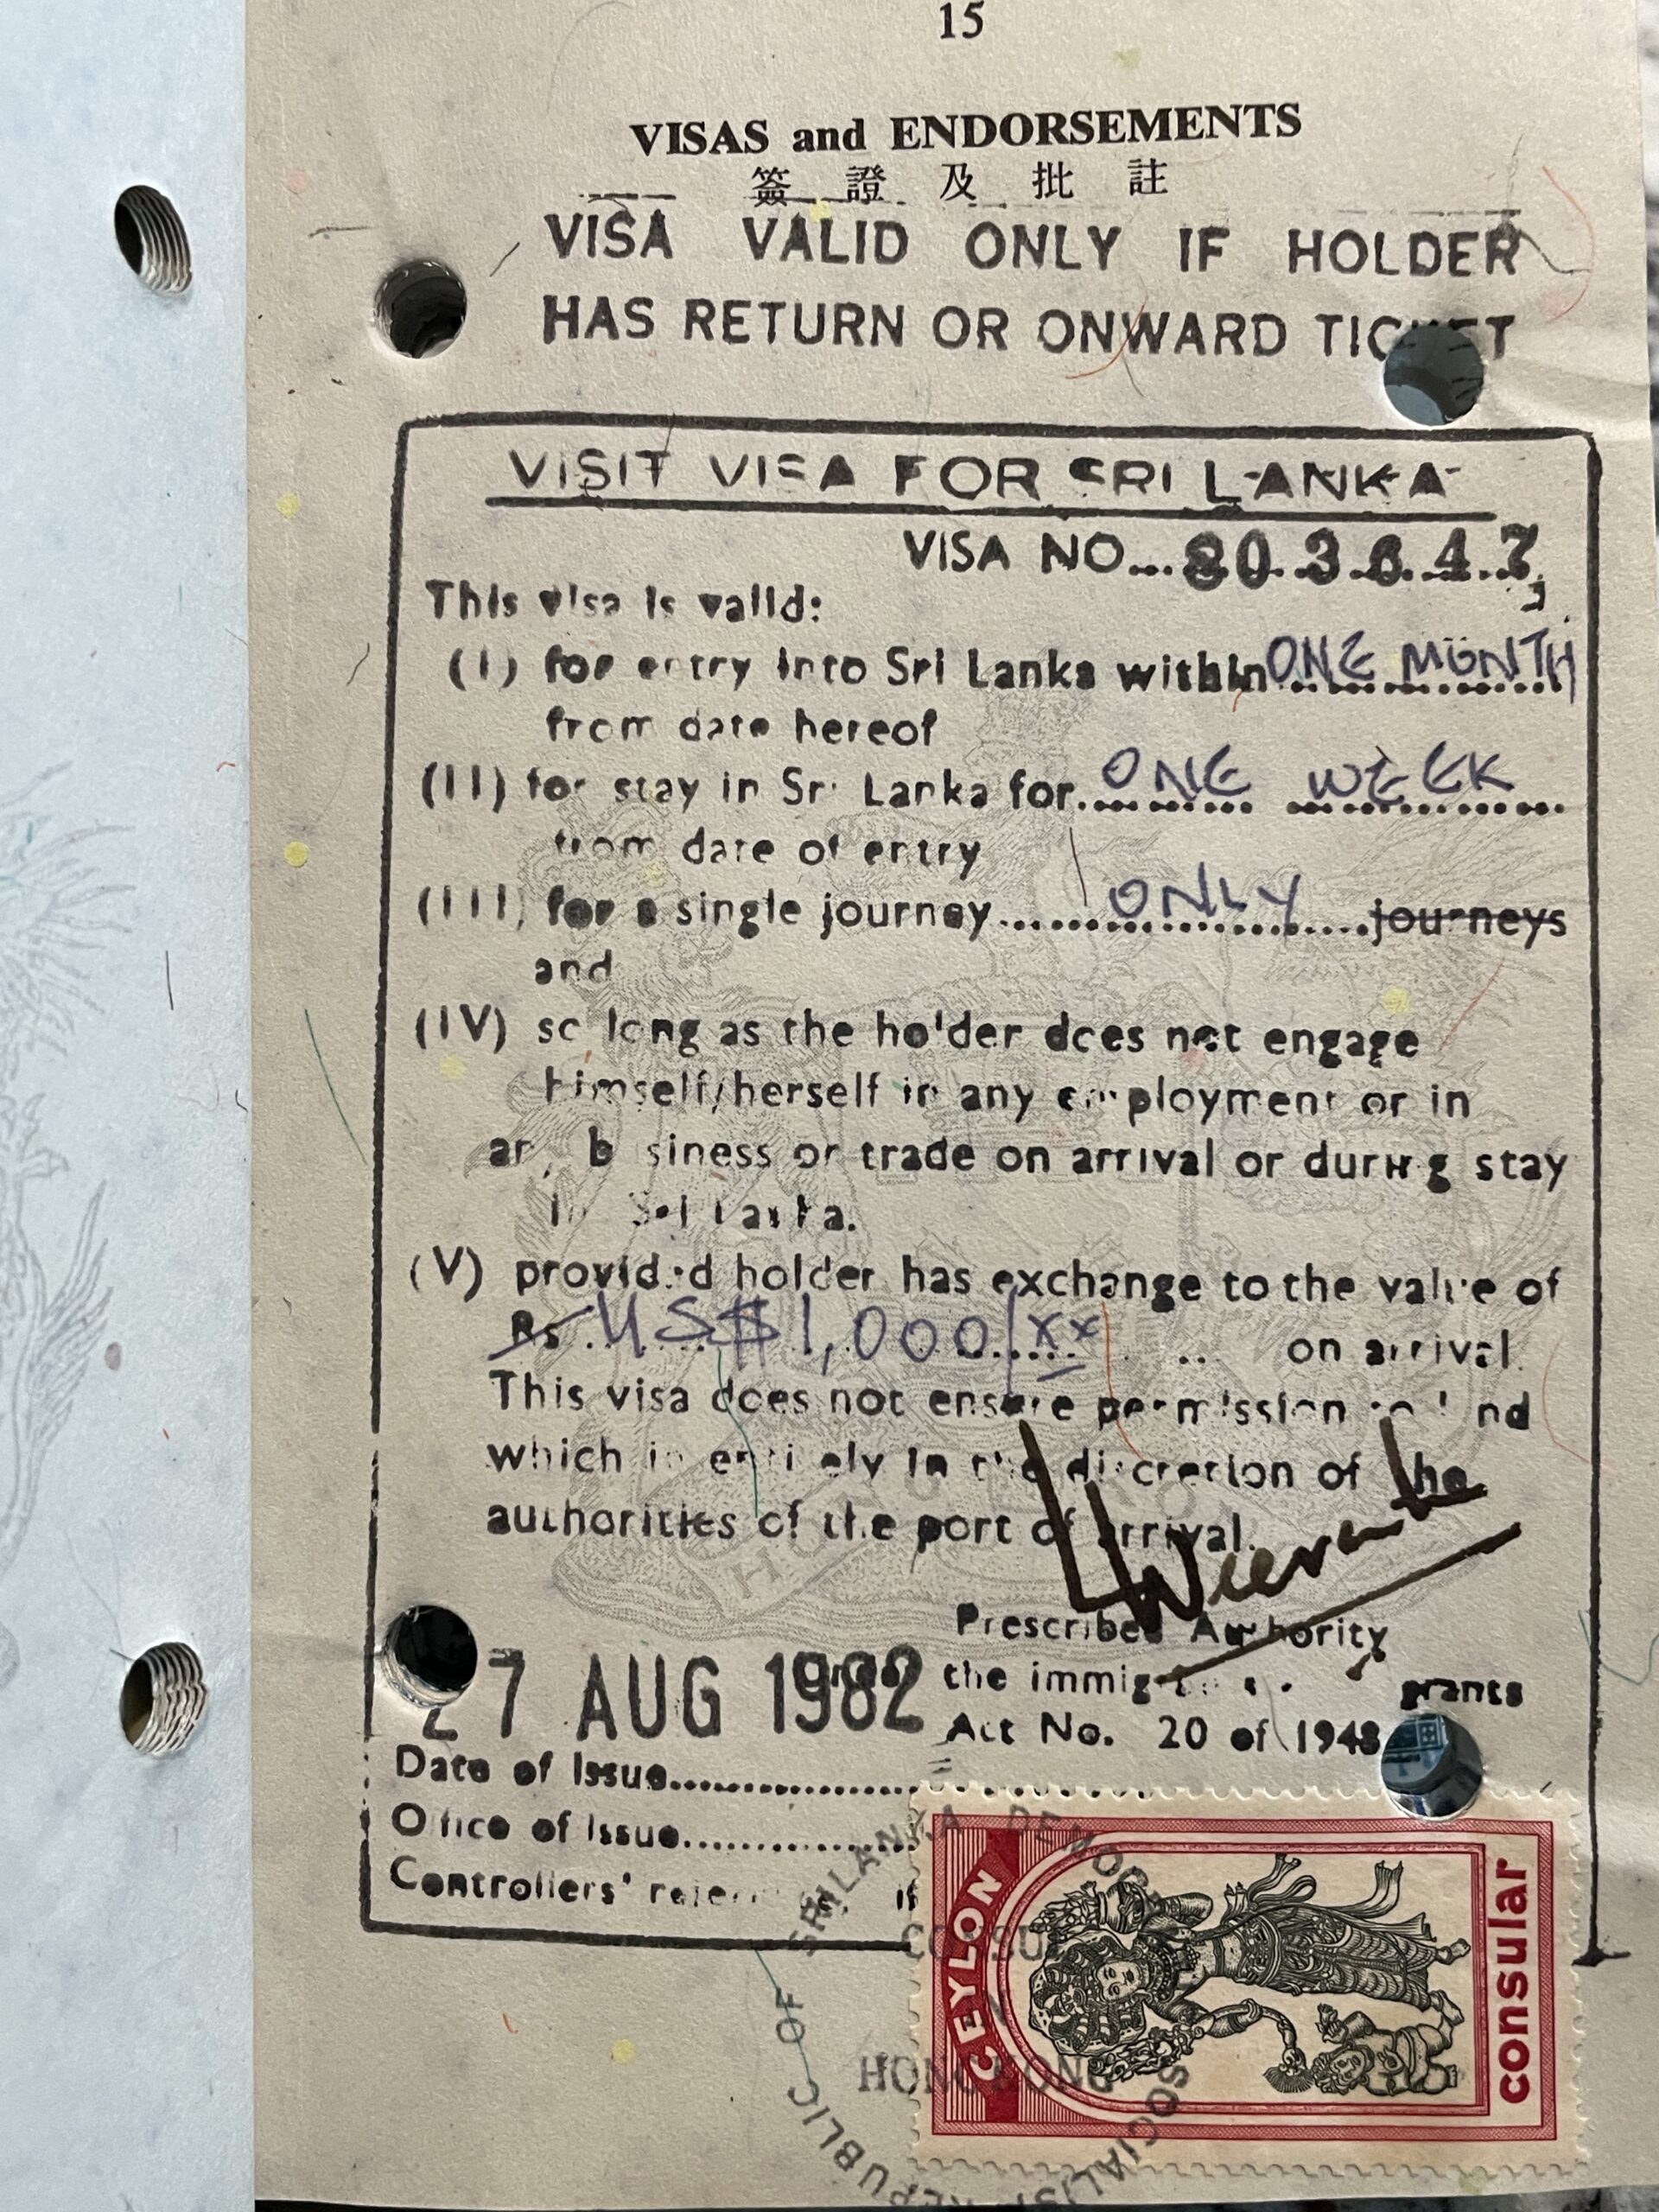 15
VISAS and ENDORSEMENTS
簽證及批註
VISA VALID ONLY IF HOLDER
HAS RETURN OR ONWARD TICKET
VISIT VISA FOR SRI LANKA
VISA NO...
This visa is valid:
(I) for entry into Sri Lanka within ONE MONTH
from date hereof
(II) for stay in Sri Lanka for ONE WEEK
from date of entry
(III) for a single journey ONLY journeys
and
(IV) so long as the holder does not engage
himself/herself in any employment or in
any business or trade on arrival or during stay
in Sri Lanka.
(V) provided holder has exchange to the value of
Rs US$1,000/xx on arrival.
This visa does not ensure permission to land
which is entirely in the discretion of the
authorities of the port of arrival.
Prescribed Authority
the immig grants
Act No. 20 of 1948
27 AUG 1982
Date of Issue
Office of Issue
Controllers' if
CEYLON
consular
SRI LANKA DEMOC SOCIALIST REPUBLIC OF
CONSU
HONG KONG